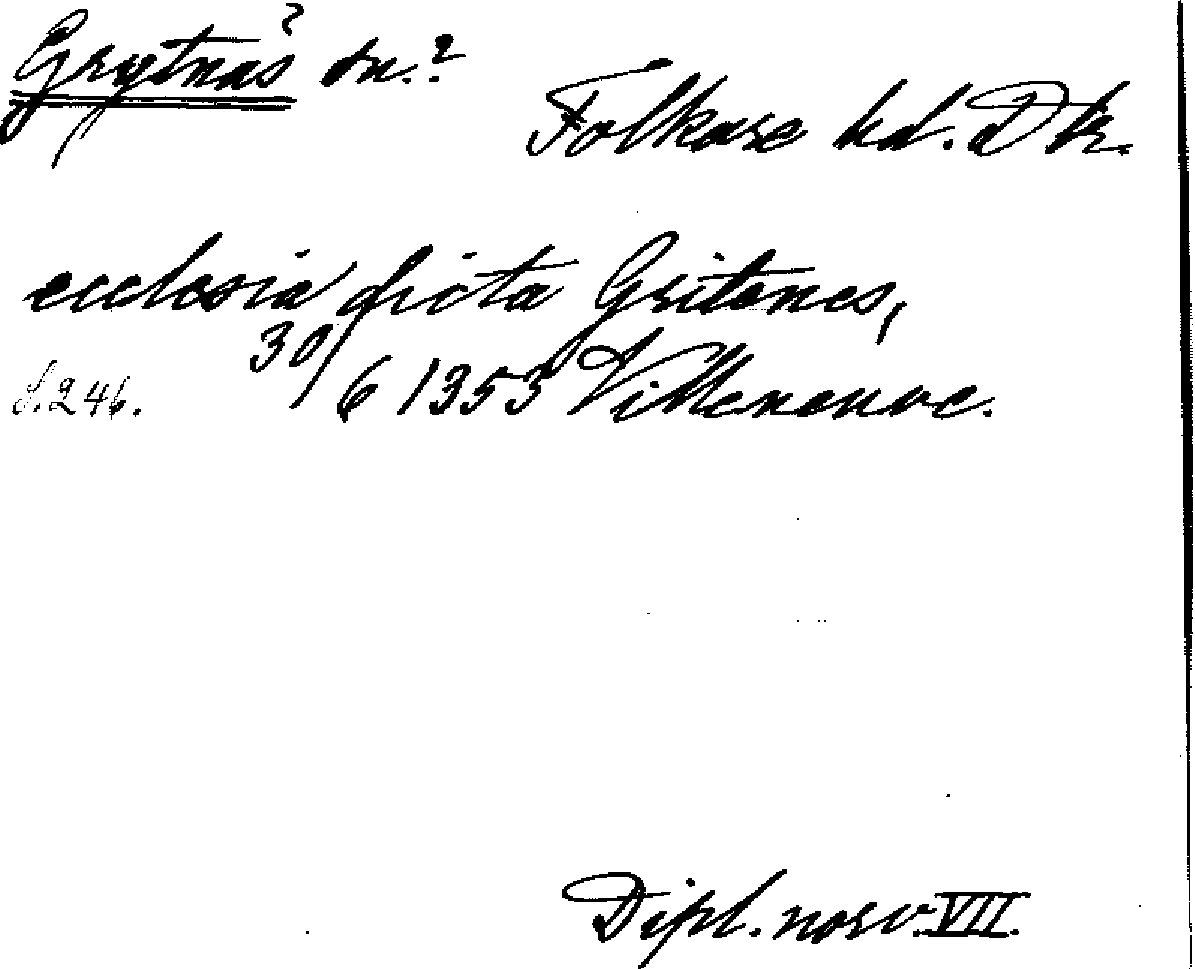 Grytnäs? sn.?
Folkare hd. Dlr.
ecclesia dicta Gritenes,
30/6 1353 Villeneuve.
S. 246.
Dipl. norv. VII.